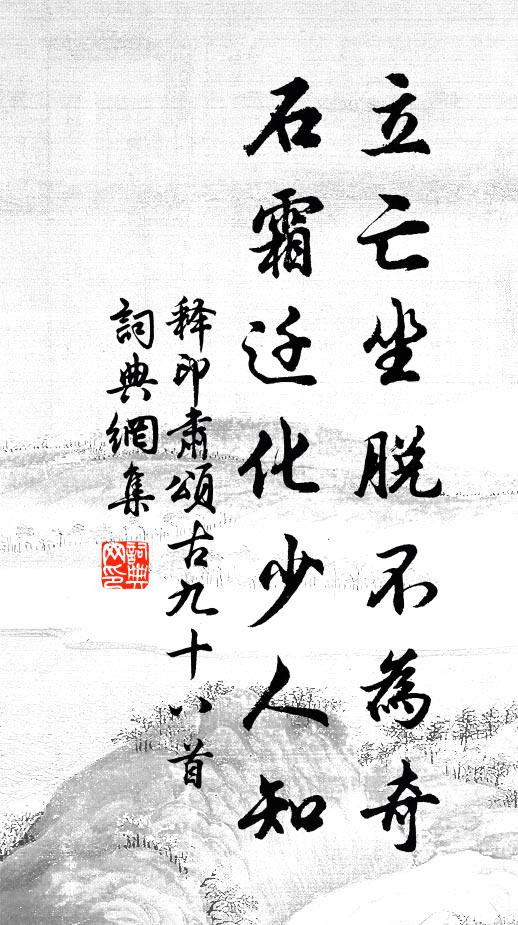 立亡坐脱不為奇
石霜迁化少人知
释印肃頌古九十八首
詞典網集
詞典網印